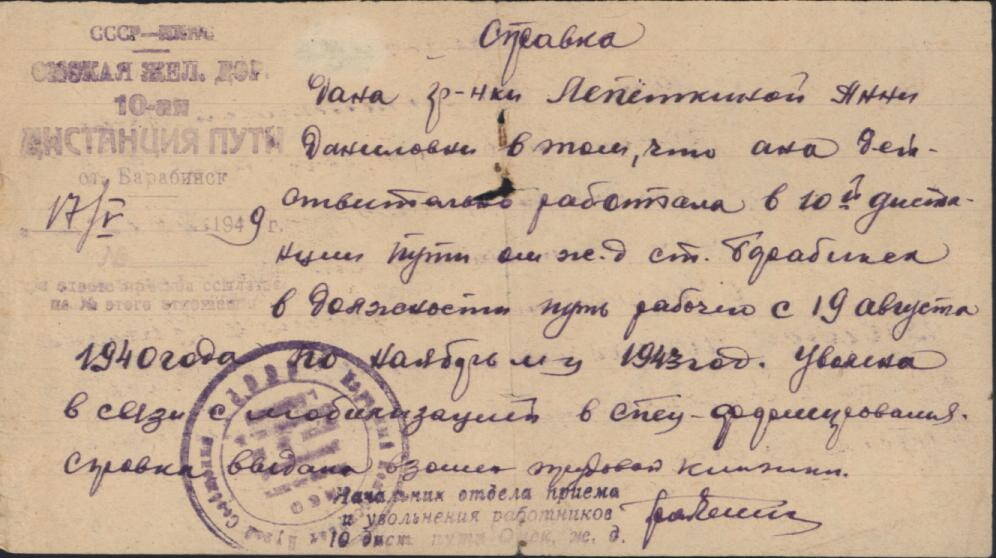 СССР—НКПС
ОМСКАЯ ЖЕЛ. ДОР.
10-ая
ДИСТАНЦИЯ ПУТИ
ст. Барабинск
17/V 1949 г.
№
При ответе просьба ссылаться
на № этого отношения
Справка
Дана гр-нки Лепёткиной Анни
Даниловни в том, что она дей-
ствительно работала в 10й диста-
нции пути ом ж.д ст. Барабинск
в должности путь рабочего с 19 августа
1940 года по ноябрь м-ц 1943 год. Уволена
в связи с мобилизацией в спец-формирования.
Справка выдана взамен трудовой книжки.
Начальник отдела приема
и увольнения работников
10 дист пути Омск. ж. д.